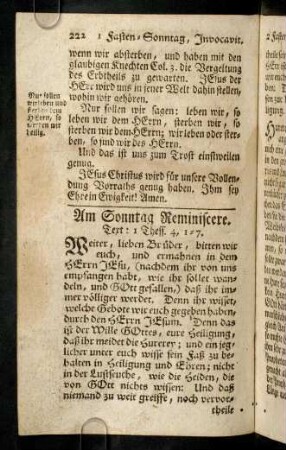 222 1 Fasten-Sonntag, Invocavit.
wenn wir absterben, und haben mit den
glaubigen Knechten Col. 3. die Vergeltung
des Erbtheils zu gewarten. JEsus der
HErr wird uns in jener Welt dahin stellen,
wohin wir gehören.
Nur sollen wir sagen: leben wir, so
leben wir dem HErrn, sterben wir, so
sterben wir dem HErrn; wir leben oder ster-
ben, so sind wir des HErrn.
Und das ist uns zum Trost einstweilen
genug.
JEsus Christus wird für unsere Vollen-
dung Vorraths genug haben. Ihm sey
Ehre in Ewigkeit! Amen.
Nur sollen
wir leben und
sterben dem
HErrn, so
werden wir
heilig.
Am Sonntag Reminiscere.
Text: 1 Thess. 4, 1-7.
Weiter, lieben Brüder, bitten wir
euch, und ermahnen in dem
HErrn JEsu, (nachdem ihr von uns
empfangen habt, wie ihr sollet wan-
deln, und GOtt gefallen,) daß ihr im-
mer völliger werdet. Denn ihr wisset,
welche Gebote wir euch gegeben haben,
durch den HErrn JEsum. Denn das
ist der Wille GOttes, eure Heiligung,
daß ihr meidet die Hurerey; und ein jeg-
licher unter euch wisse sein Faß zu be-
halten in Heiligung und Ehren; nicht
in der Lustseuche, wie die Heiden, die
von GOtt nichts wissen: Und daß
niemand zu weit greiffe, noch vervor-
theile